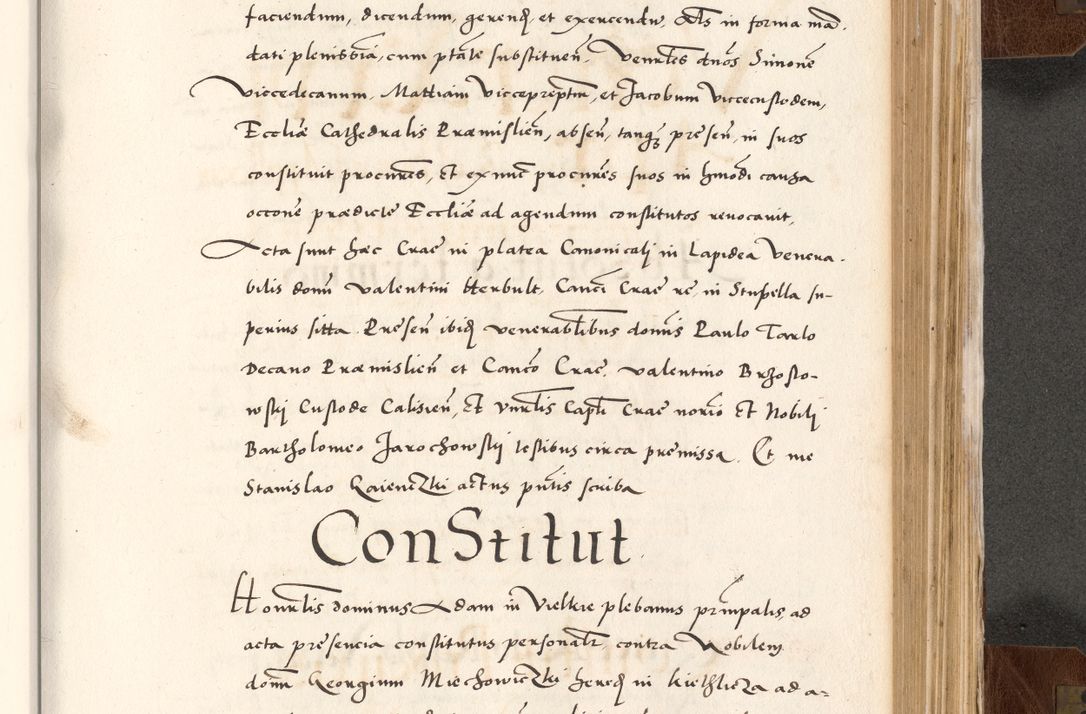 faciendum, dicendum, gerend, et exercendu, Als in forma mā.
dati plenissiā, cum ptāte substituen. Venrles dnōs Simonē
Viccedecanum, Mattiam Viccepreptm, et Jacobum Viccecustodem,
Eccliæ Cathedralis Præmislien, absen, tanq presen, in suos
constituit procures, Et ex nunc procures suos in hmōdi causa
occone prædicte Eccliæ ad agendum constitutos renocauit,
Acta sunt hæc Crae in platea Canonicali in Lapidea Venera.
bilis domi Valentini Herbult, Canci Crae re, in Stubella su-
perius sitta. Presen ibid venerablibus domis Paulo Tarlo
Decano Præmislien et Canco Crae, Valentino Brzosto-
wskj Custode Calisien, Et Vnrlis Capli Crae norio Et Nobilj
Bartholomeo Jarochowskj testibus circa premissa. Et me
Stanislao Raienczki actus pntis scriba
ConStitut
Honrlis dominus Adam in Vielkie plebanus prinpalis, ad
acta presencia constitutus personalr, contra Nobilem
domi Georgium Miechowiczki hered in Kielhlicza ad a-